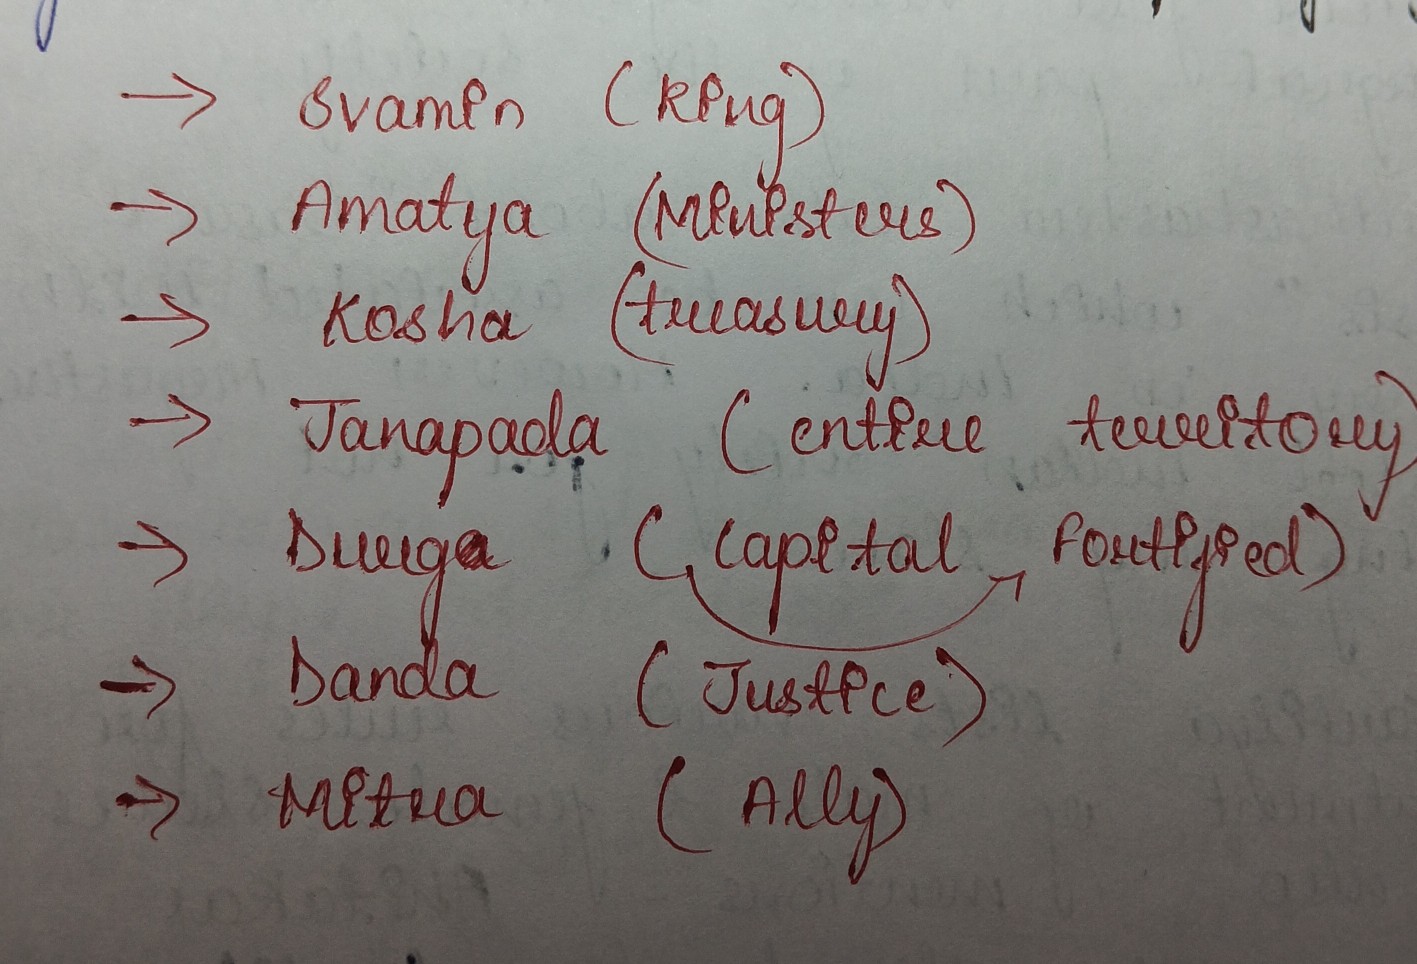 → Svamin (King)
→ Amatya (Ministers)
→ Kosha (treasury)
→ Janapada (entire territory)
→ Durga (Capital fortified)
→ Danda (Justice)
→ Mitra (Ally)